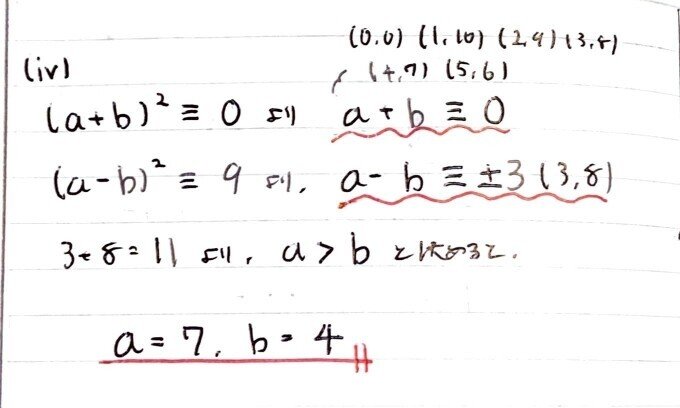 (0,0) (1,10) (2,9) (3,8)
(4,7) (5,6)
(iv)
(a+b)² ≡ 0 より a + b ≡ 0
(a-b)² ≡ 9 より、 a - b ≡ ±3 (3,8)
3+8=11 より、 a > b と決めると、
a = 7, b = 4